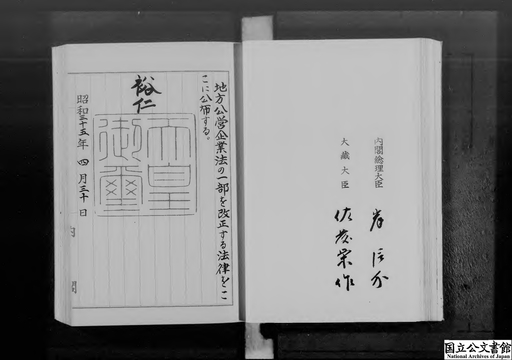 地方公営企業法の一部を改正する法律をこ
こに公布する。
裕仁
天皇
御璽
昭和三十五年 四月三十日
内閣総理大臣
岸信介
大蔵大臣
佐藤栄作
国立公文書館
National Archives of Japan